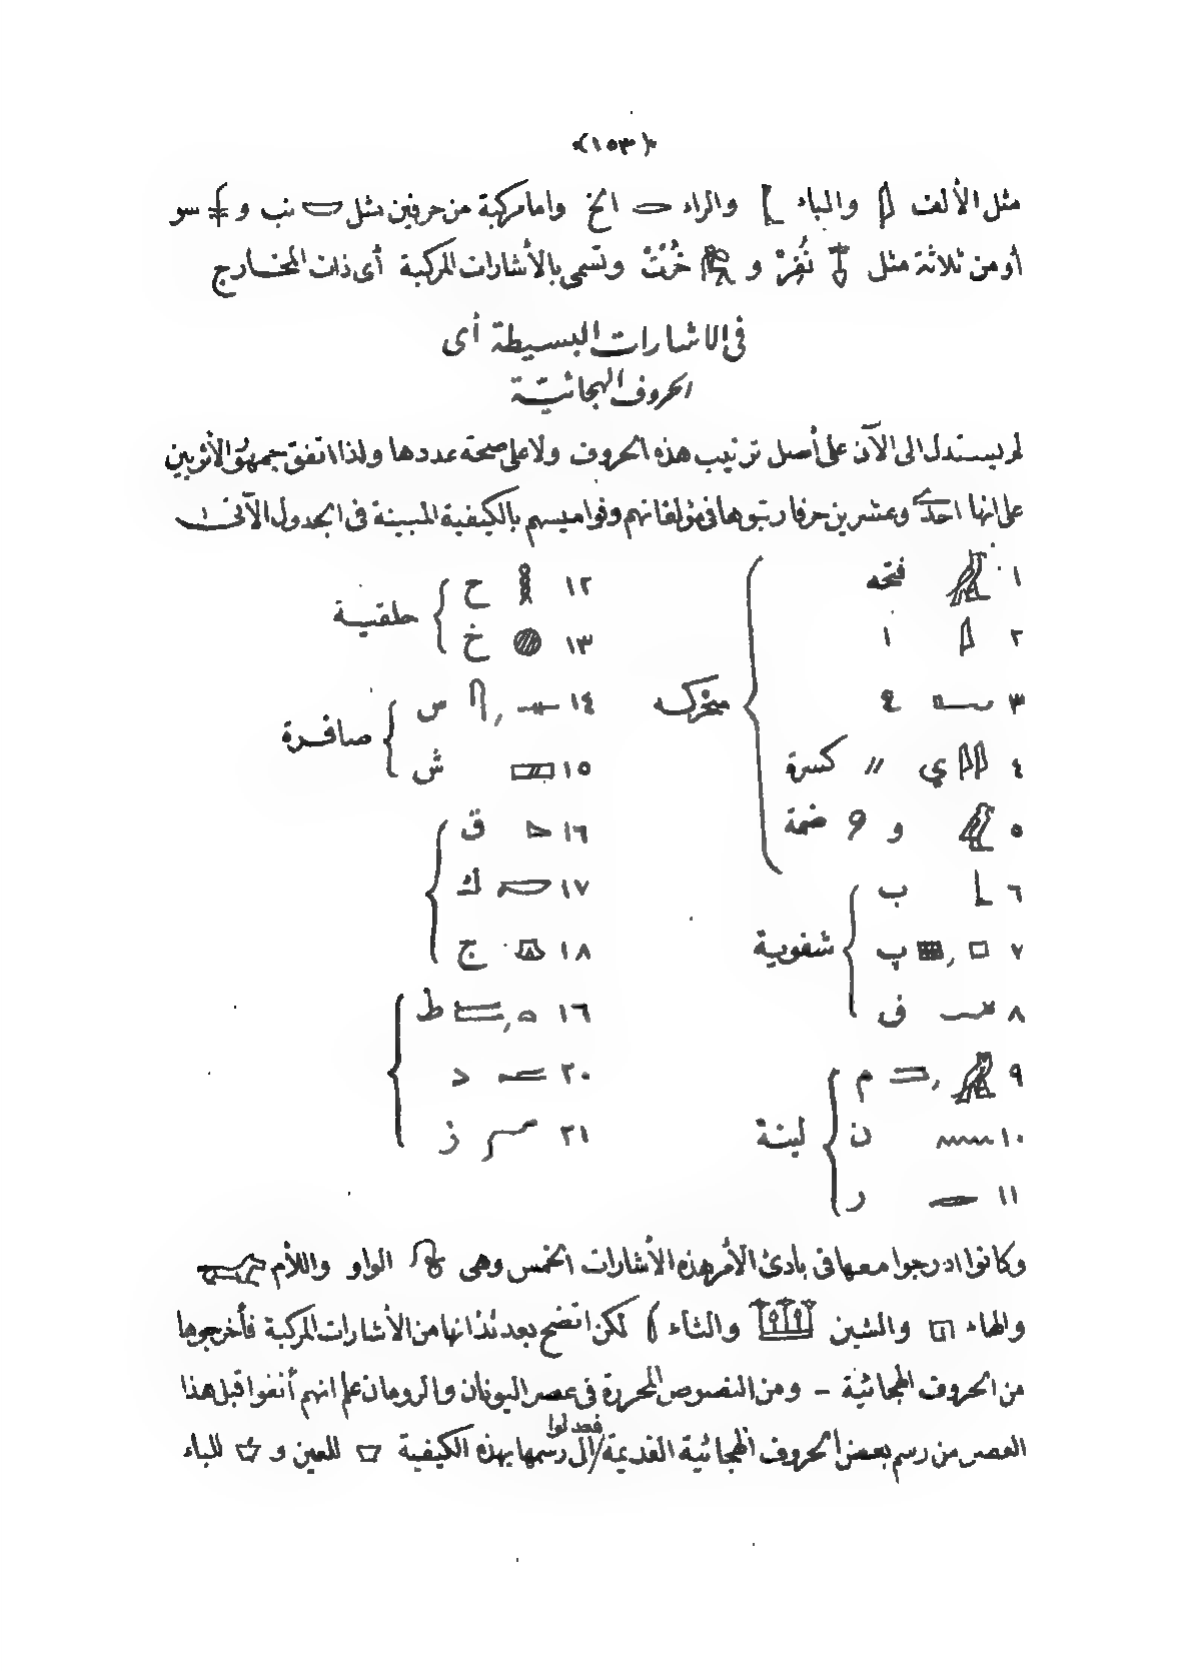 ﴿١٥٣﴾
مثل الألف 𓇋 والباء 𓃀 والراء 𓂋 الخ واما مركبة من حرفين مثل 𓎟 نب و 𓇓 سو
أو من ثلاثة مثل 𓄤 نُفِرْ و خُرُتْ وتسمى بالأشارات المركبة أى ذات المخارج
فى الاشارات البسيطة أى
الحروف الهجائية
لم يستدل الى الآن على أصل ترتيب هذه الحروف ولا على صحة عددها ولذا اتفق جمهور الأثريين
على انها احدى وعشرين حرفا رتبوها فى مؤلفاتهم وقواميسهم بالكيفية المبينة فى الجدول الآتى
١ 𓄿 فتحه
٢ 𓇋 ا
٣ 𓂝 ع
٤ 𓇌 ي 〃 كسرة
٥ 𓅱 و 𓏲 ضمة
متحركه
٦ 𓃀 ب
٧ 𓊪 , 𓐍 پ
٨ 𓆑 ف
شفوية
٩ 𓅓 , 𓐝 م
١٠ 𓈖 ن
١١ 𓂋 ر
لينة
١٢ 𓎛 ح
١٣ 𓐍 خ
حلقية
١٤ 𓊃 , 𓋴 س
١٥ 𓈙 ش
صافرة
١٦ 𓈎 ق
١٧ 𓎡 ك
١٨ 𓎼 ج
١٦ 𓏏 , 𓍿 ط
٢٠ 𓂧 د
٢١ 𓆓 ز
وكانوا ادرجوا معها فى بادئ الأمر هذه الأشارات الخمس وهى 𓍯 الواو واللأم 𓃭
والهاء 𓉔 والشين 𓆷 والثاء لكن اتضح بعدئذ انها من الأشارات المركبة فأخرجوها
من الحروف الهجائية - ومن النصوص المحررة فى عصر اليونان والرومان علم انهم أنفوا قبل هذا
العصر من رسم بعض الحروف الهجائية القديمة فعدلوا الى رسمها بهذه الكيفية للعين و للباء